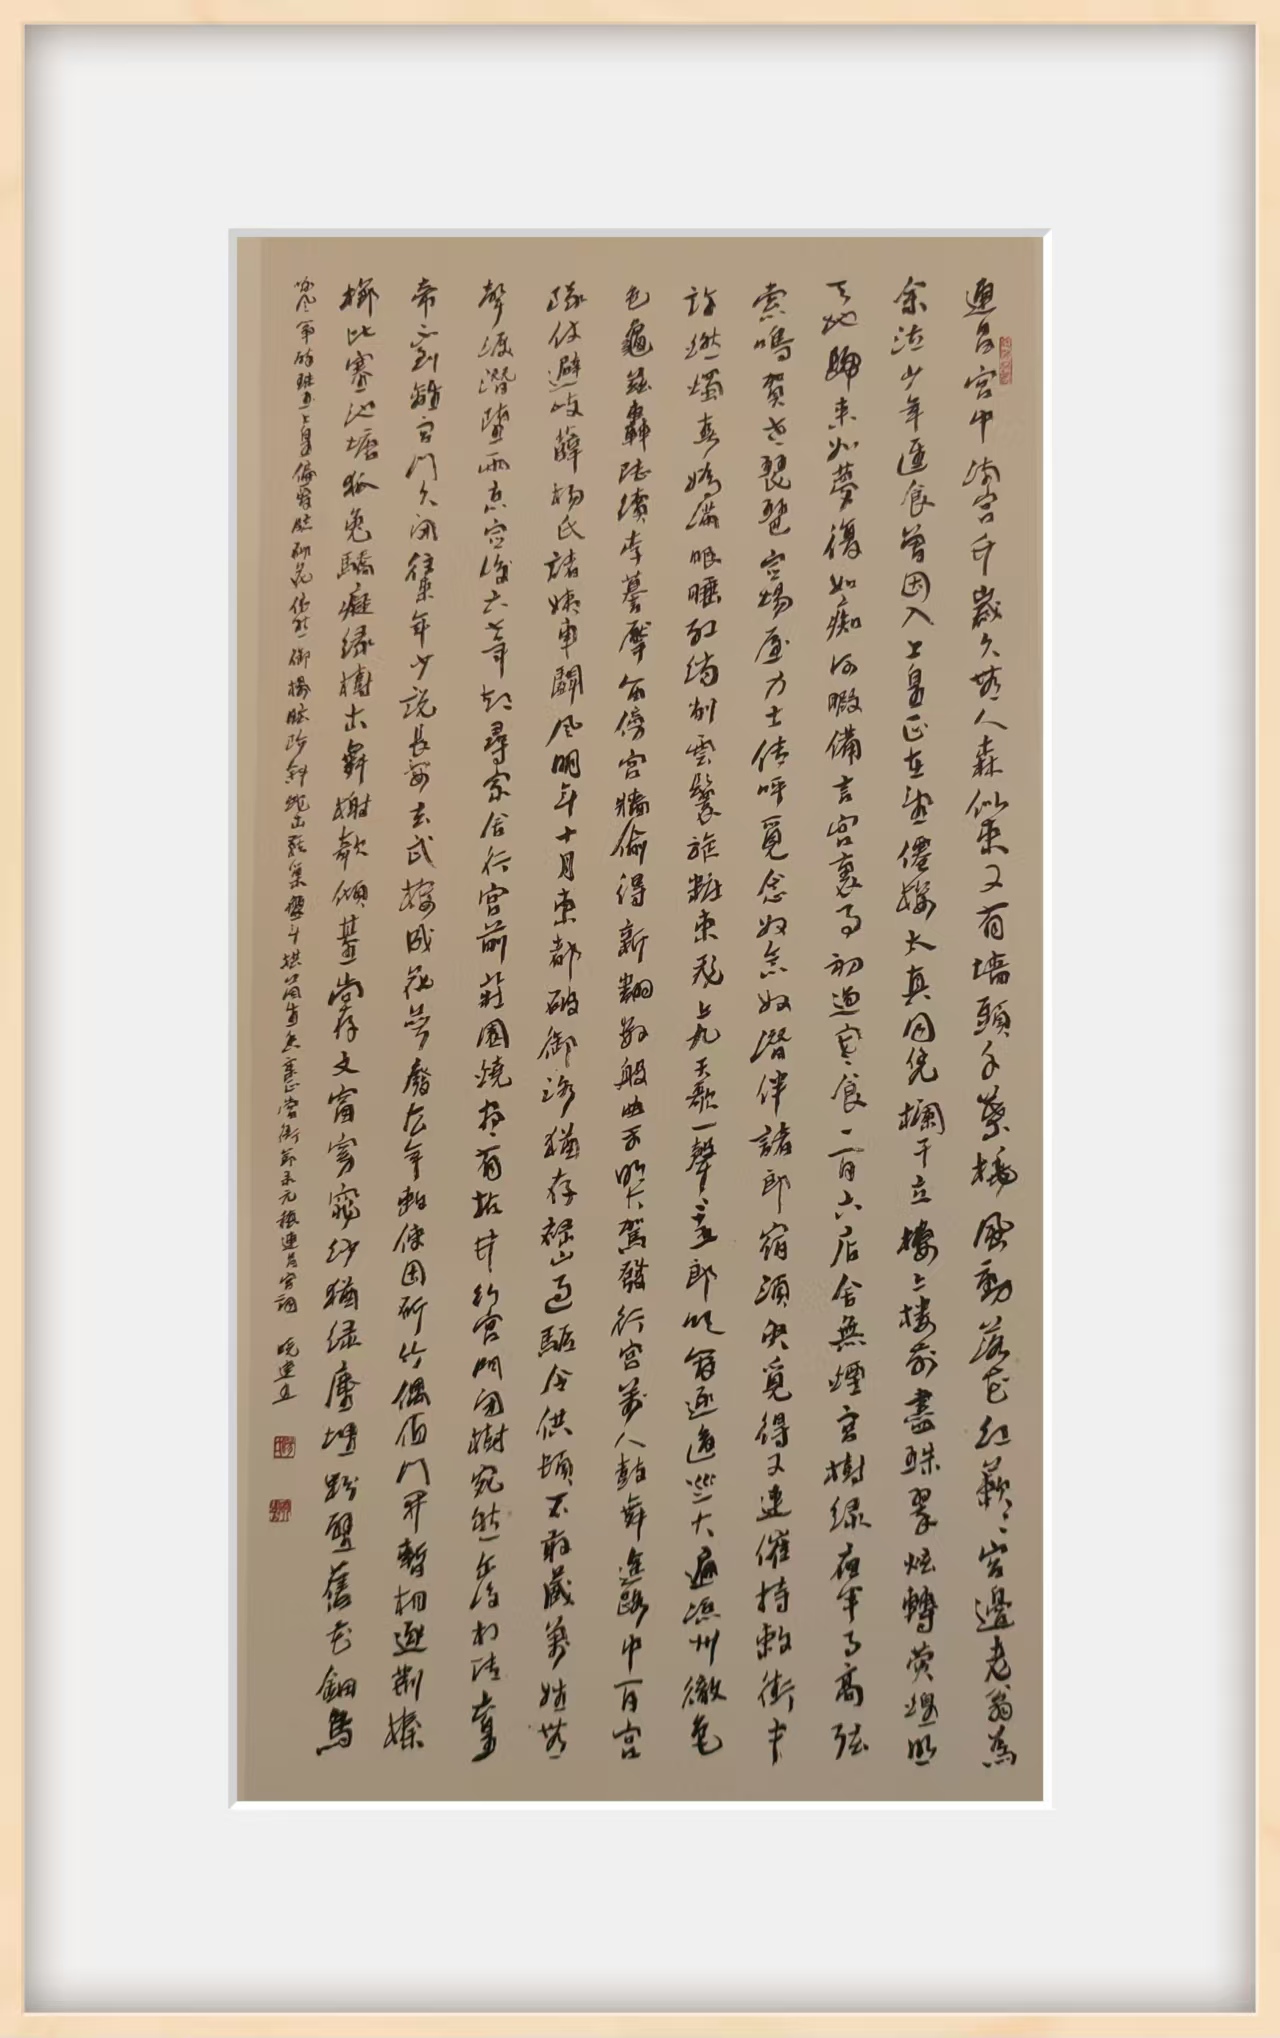 連昌宮中滿宮竹歲久無人森似束又有墻頭千葉桃風動落花紅蔌々宮邊老翁為
余泣少年進食曾因入上皇正在望僊樓太真同凭欄干立樓上樓前盡珠翠炫轉熒煌照
天地歸來如夢復如痴何暇備言宮裏事初過寒食一百六店舍無煙宮樹綠夜半月高弦
索鳴賀老琵琶定場屋力士傳呼覓念奴念奴潛伴諸郎宿須臾覓得又連催特敕街中
許燃燭春嬌滿眼睡紅綃削雲鬟旋粧束飛上九天歌一聲二十五郎吹管逐逡巡大遍涼州徹色
色龜茲轟陸續李謩擪笛傍宮牆偷得新翻數般曲平明大駕發行宮萬人鼓舞途路中百官
隊仗避岐薛楊氏諸姨車鬬風明年十月東都破御路猶存祿山過驅令供頓不敢藏萬姓無
聲淚潛墮兩京定後六七年却尋家舍行宮前莊園燒盡有枯井行宮門闭樹宛然尔後相傳六皇
帝不到離宮門久闭往來年少說長安玄武樓成花萼廢去年敕使因斫竹偶值門開暫相逐荆榛
櫛比塞池塘狐兔驕癡緣樹木舞榭欹傾基尚存文窗窈窕紗猶綠塵埋粉壁舊花鈿烏
啄風箏碎珠玉上皇偏愛臨砌花依然御榻臨階斜蛇出燕巢盤斗拱菌生香案正當衙節录元稹連昌宮詞 曉建书